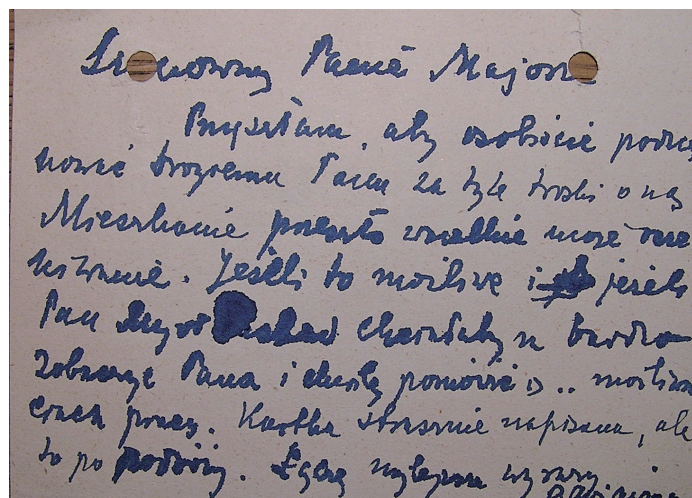 Szanowny Panie Majorze
Przyszłam, aby osobiście podzię
kować drogiemu Panu za tyle troski o nas
Mieszkanie przeszło wszelkie moje ocze
kiwanie. Jeśli to możliwe i jeżeli
Pan chciałabym bardzo
zobaczyć Pana i chwilę pomówić o .. możliwo
pracy. Kartka strasznie napisana, ale
to po podróży. Łączę najlepsze wyrazy